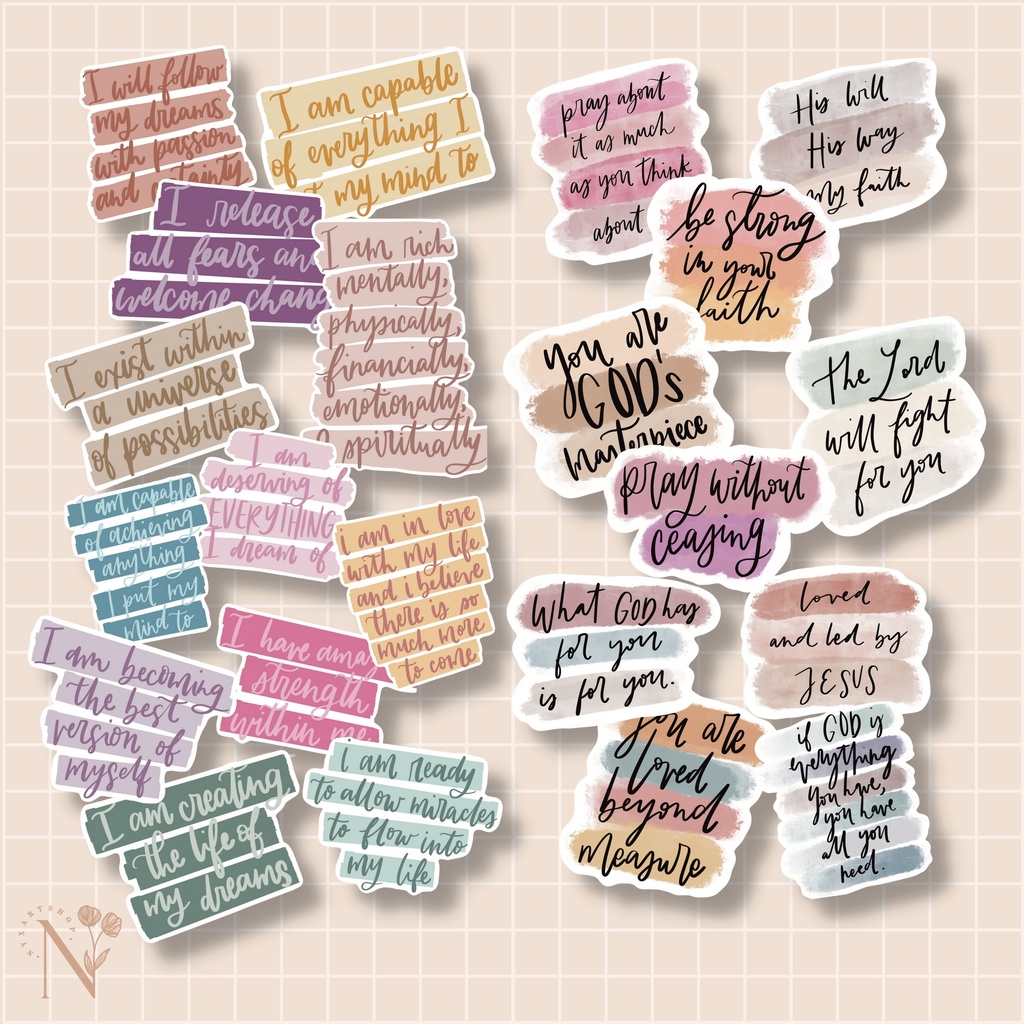 I will follow
my dreams
with passion
and certainty
I am capable
of everything I
my mind to
I release
all fears and
welcome chang
I am rich
mentally,
physically,
financially,
emotionally,
spiritually
I exist within
a universe
of possibilities
I am
deserving of
EVERYTHING
I dream of
I am capable
of achieving
anything
I put my
mind to
i am in love
with my life
and i believe
there is so
much more
to come
I am becoming
the best
version of
myself
I have ama
strength
within me
I am creating
the life of
my dreams
i am ready
to allow miracles
to flow into
my life
pray about
it as much
as you think
about
His will
His way
my faith
be strong
in your
faith
you are
GOD's
masterpiece
the Lord
will fight
for you
pray without
ceasing
What GOD has
for you
is for you.
loved
and led by
JESUS
you are
loved
beyond
measure
if GOD is
everything
you have,
you have
all you
need.
NYXARTSHOP
N